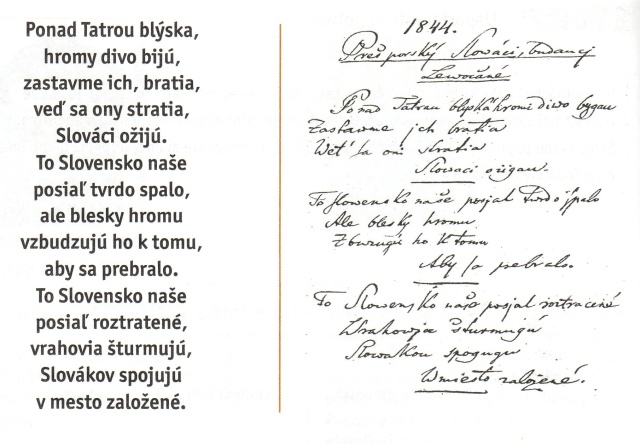 Ponad Tatrou blýska,
hromy divo bijú,
zastavme ich, bratia,
veď sa ony stratia,
Slováci ožijú.
To Slovensko naše
posiaľ tvrdo spalo,
ale blesky hromu
vzbudzujú ho k tomu,
aby sa prebralo.
To Slovensko naše
posiaľ roztratené,
vrahovia šturmujú,
Slovákov spojujú
v mesto založené.
1844.
Prešporský Slowáci, budaucj
Lewočané
Ponad Tatrau blyská hromi diwo bygau
Zastawme jch bratia
Wet' sa oni stratia
Slowaci ožigau.
To slowensko naše posjal twrdo spalo
Ale blesky hromu
Zburzugú ho k tomu
Aby sa prebralo.
To Slowensko naše posjal roztracené
Wrahowja šturmugú
Slowakou spogugu
W miesto založené.